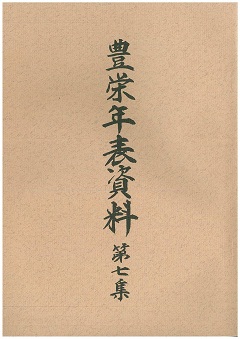 豊栄年表資料 第七集